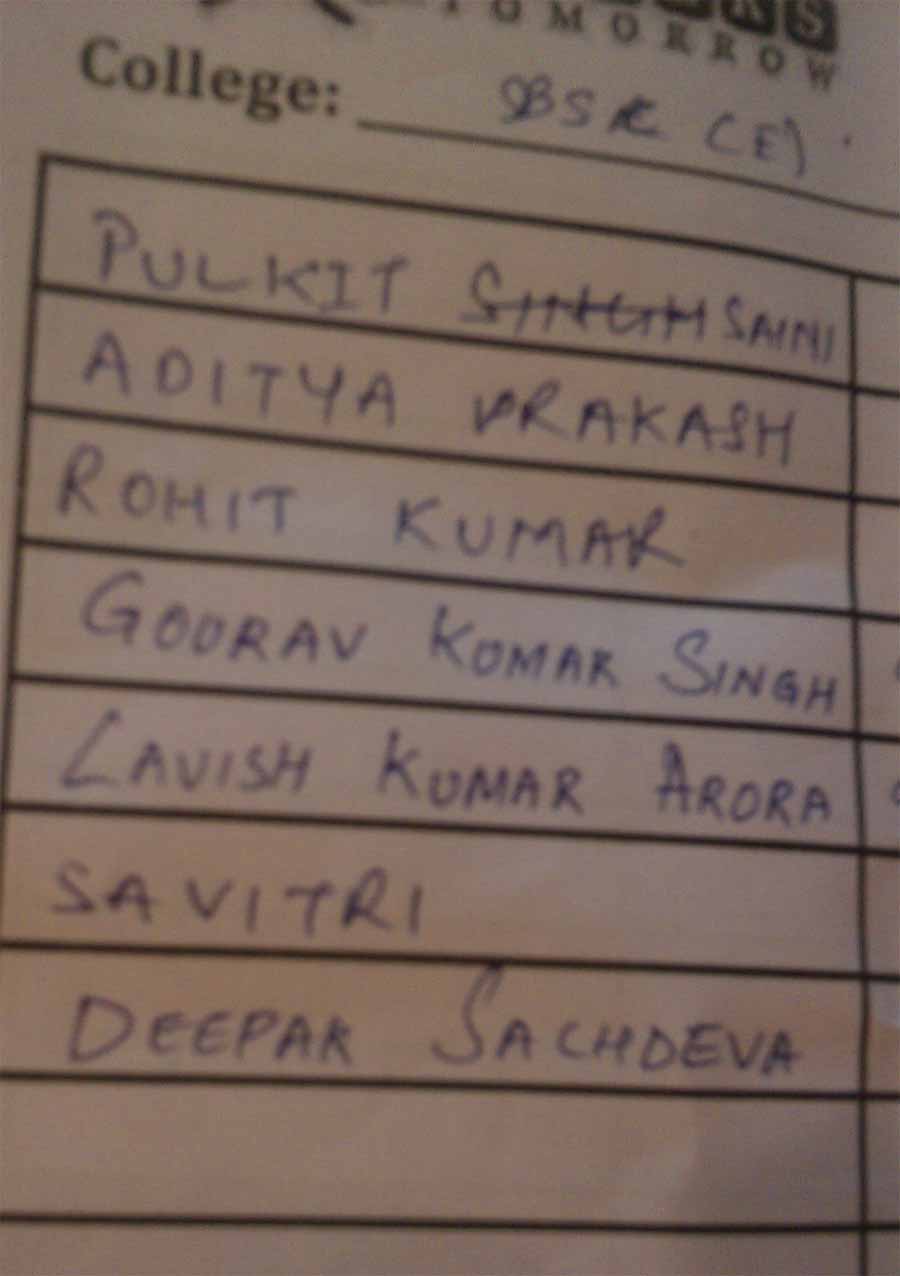 TOMORROW
College: SBSC (E)
PULKIT SINGH SAINI
ADITYA PRAKASH
ROHIT KUMAR
GOURAV KUMAR SINGH
LAVISH KUMAR ARORA
SAVITRI
DEEPAK SACHDEVA